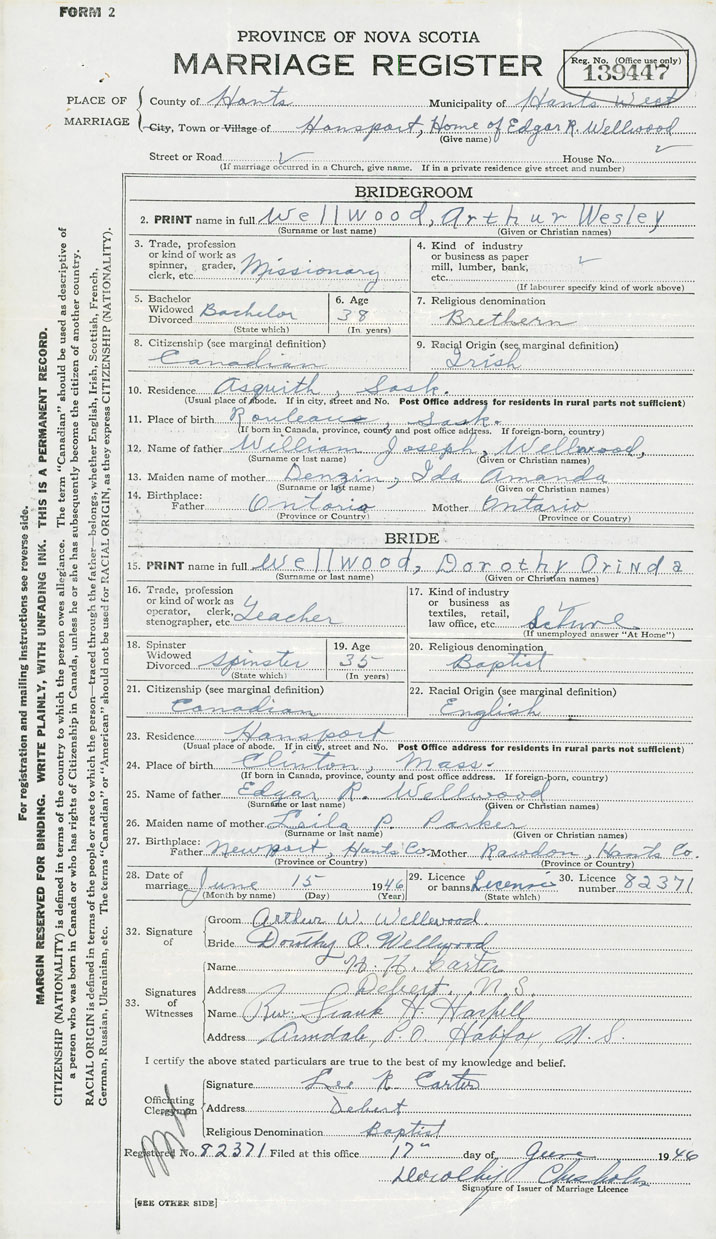 FORM 2
PROVINCE OF NOVA SCOTIA
MARRIAGE REGISTER
Reg. No. (Office use only)
139447
PLACE OF MARRIAGE
County of Hants Municipality of Hants West
City, Town or Village of Hansport, Home of Edgar R. Wellwood
(Give name)
Street or Road ✓ House No. ✓
(If marriage occurred in a Church, give name. If in a private residence give street and number)
BRIDEGROOM
2. PRINT name in full Wellwood, Arthur Wesley
(Surname or last name) (Given or Christian names)
3. Trade, profession or kind of work as spinner, grader, clerk, etc. Missionary
4. Kind of industry or business as paper mill, lumber, bank, etc. ✓
(If labourer specify kind of work above)
5. Bachelor Widowed Divorced Bachelor
(State which)
6. Age 38
(In years)
7. Religious denomination
Brethern
8. Citizenship (see marginal definition)
Canadian
9. Racial Origin (see marginal definition)
Irish
10. Residence Asquith, Sask.
(Usual place of abode. If in city, street and No. Post Office address for residents in rural parts not sufficient)
11. Place of birth Rouleau, Sask.
(If born in Canada, province, county and post office address. If foreign-born, country)
12. Name of father William Joseph, Wellwood,
(Surname or last name) (Given or Christian names)
13. Maiden name of mother Denzin, Ida Amanda
(Surname or last name) (Given or Christian names)
14. Birthplace: Father Ontario Mother Ontario
(Province or Country) (Province or Country)
BRIDE
15. PRINT name in full Wellwood, Dorothy Orinda
(Surname or last name) (Given or Christian names)
16. Trade, profession or kind of work as operator, clerk, stenographer, etc. Teacher
17. Kind of industry or business as textiles, retail, law office, etc.
(If unemployed answer "At Home")
18. Spinster Widowed Divorced Spinster
(State which)
19. Age 35
(In years)
20. Religious denomination
Baptist
21. Citizenship (see marginal definition)
Canadian
22. Racial Origin (see marginal definition)
English
23. Residence Hansport
(Usual place of abode. If in city, street and No. Post Office address for residents in rural parts not sufficient)
24. Place of birth Clinton, Mass.
(If born in Canada, province, county and post office address. If foreign-born, country)
25. Name of father Edgar R. Wellwood
(Surname or last name) (Given or Christian names)
26. Maiden name of mother Leila P. Parker
(Surname or last name) (Given or Christian names)
27. Birthplace: Father Newport, Hants Co. Mother Rawdon, Hants Co.
(Province or Country) (Province or Country)
28. Date of marriage June 15 1946
(Month by name) (Day) (Year)
29. Licence or banns License
(State which)
30. Licence number 82371
32. Signature of
Groom Arthur W. Wellwood.
Bride Dorothy O. Wellwood
33. Signatures of Witnesses
Name H. H. Carter
Address Debert, N.S.
Name Rev. Frank H.
Address Armdale, P.O. Halifax, N.S.
I certify the above stated particulars are true to the best of my knowledge and belief.
Officiating Clergyman
Signature Lee R. Carter
Address Debert
Religious Denomination Baptist
Registered No. 82371 Filed at this office 17th day of June 1946
Dorothy Chisholm
Signature of Issuer of Marriage Licence
[SEE OTHER SIDE]
For registration and mailing instructions see reverse side.
MARGIN RESERVED FOR BINDING. WRITE PLAINLY, WITH UNFADING INK. THIS IS A PERMANENT RECORD.
CITIZENSHIP (NATIONALITY) is defined in terms of the country to which the person owes allegiance. The term "Canadian" should be used as descriptive of
a person who was born in Canada or who has rights of Citizenship in Canada, unless he or she has subsequently become the citizen of another country.
RACIAL ORIGIN is defined in terms of the people or race to which the person—traced through the father—belongs, whether English, Irish, Scottish, French,
German, Russian, Ukrainian, etc. The terms "Canadian" or "American" should not be used for RACIAL ORIGIN, as they express CITIZENSHIP (NATIONALITY).